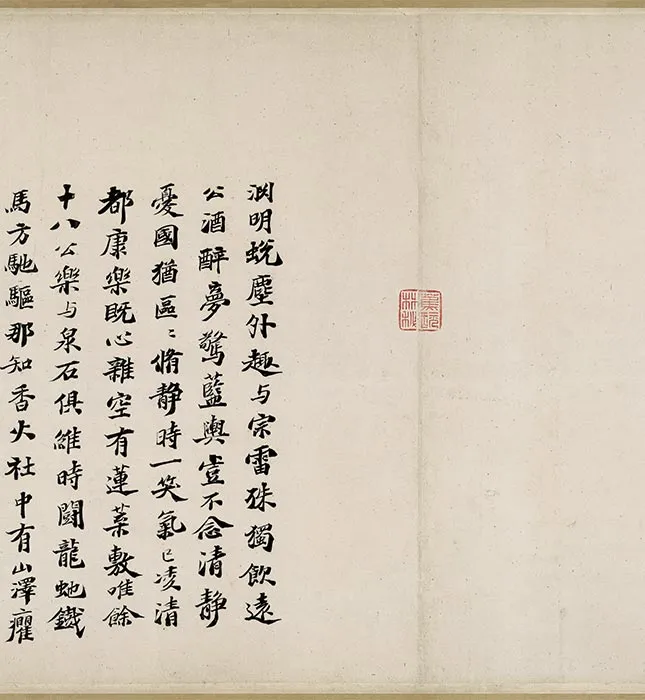 渕明蛻塵外趣与宗雷殊獨飲遠
公酒醉夢驚藍輿豈不念清静
憂國猶區〻脩静時一笑氣已凌清
都康樂既心雜空有蓮葉敷唯餘
十八公樂与泉石俱雖時鬪龍虵鐵
馬方馳驅那知香火社中有山澤癯